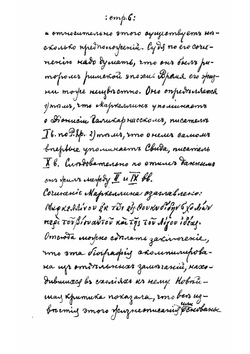 : стр. 6:
и относительно этого существует не-
сколько предположений. Судя по его сочи-
нению надо думать, что он был ри-
тором римской эпохи. Время его жиз-
ни тоже неизвестно. Оно определяется
1) тем, что Маркеллин упоминает
о Дионисии Галикарнасском, писателе
I в. по Р. Хр. 2) тем, что о нем самом
впервые упоминает Свида, писатель
X в. Следовательно по этим данным
он жил между II и IX вв.
Сочинение Маркеллина озаглавлено:
Μαρκελλίνου ἐκ τῶν εἰς Θουκυδίδην σχολίων
περὶ τοῦ βίου αὐτοῦ καὶ τῆς τοῦ λόγου ἰδέας.
Отсюда можно сделать заключение,
что эта биография скомпилирова-
на из отдельных замечаний, нахо-
дившихся в схолиях к нему. Новей-
шая критика показала, что все из-
вестия этого жизнеописания или основаны